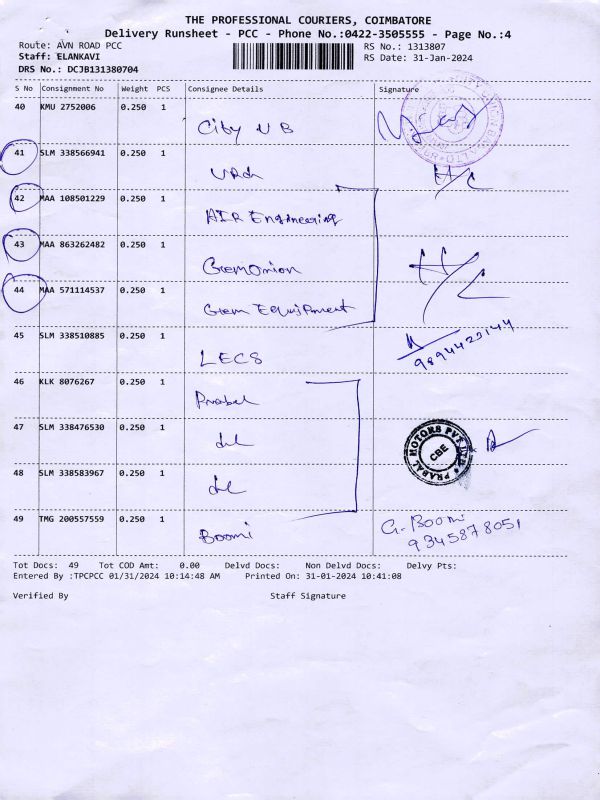 THE PROFESSIONAL COURIERS, COIMBATORE
Delivery Runsheet - PCC - Phone No.:0422-3505555 - Page No.:4
Route: AVN ROAD PCC RS No.: 1313807
Staff: ELANKAVI RS Date: 31-Jan-2024
DRS No.: DCJB131380704
S No Consignment No Weight PCS Consignee Details Signature
40 KMU 2752006 0.250 1
City U B
41 SLM 338566941 0.250 1
42 MAA 108501229 0.250 1
AIR Engineering
43 MAA 863262482 0.250 1
Gem Orion
44 MAA 571114537 0.250 1
Gem Equipment
45 SLM 338510885 0.250 1
LECS 9894425144
46 KLK 8076267 0.250 1
Prabal
47 SLM 338476530 0.250 1
PRABAL MOTORS PVT LTD CBE
48 SLM 338583967 0.250 1
49 TMG 200557559 0.250 1
Boomi G. Boomi
9345878051
Tot Docs: 49 Tot COD Amt: 0.00 Delvd Docs: Non Delvd Docs: Delvy Pts:
Entered By :TPCPCC 01/31/2024 10:14:48 AM Printed On: 31-01-2024 10:41:08
Verified By Staff Signature